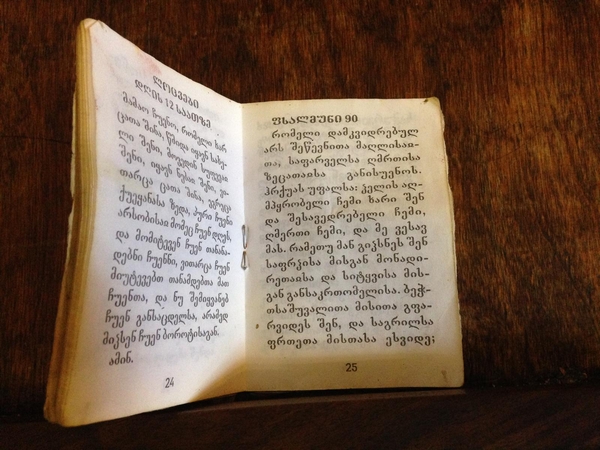 ლოცვები
დღის 12 საათზე
მამაო ჩუენო, რომელი ხარ
ცათა შინა, წმიდა იყავნ სახე-
ლი შენი, მოვედინ სუფევა
შენი, იყავნ ნება შენი, ვი-
თარცა ცათა შინა, ეგრეცა
ქუეყანასა ზედა, პური ჩუენი
არსობისაჲ მომეც ჩუენ დღეს,
და მომიტევენ ჩუენ თანანა-
დებნი ჩუენნი, ვითარცა ჩუენ
მიუტევებთ თანამდებთა მათ
ჩუენთა, და ნუ შემიყვანებ
ჩუენ განსაცდელსა, არამედ
მიჴსენ ჩუენ ბოროტისაგან.
ამინ.
24
ფსალმუნი 90
რომელი დამკვიდრებულ
არს შეწევნითა მაღლისაჲ-
თა, საფარველსა ღმრთისა
ზეცათაჲსა განისუენოს.
ჰრქუას უფალსა: ჴელის აღ-
მპყრობელი ჩემი ხარი შენ
და შესავედრებელი ჩემი,
ღმერთი ჩემი, და მე ვესავ
მას. რამეთუ მან გიჴსნეს შენ
საფრჴისა მისგან მონადი-
რეთაჲსა და სიტყვისა მის-
გან განსაკრთომელისა. ბეჭ-
თსაშუვალითა მისითა გფა-
რვიდეს შენ, და საგრილსა
ფრთეთა მისთასა ესვიდე;
25